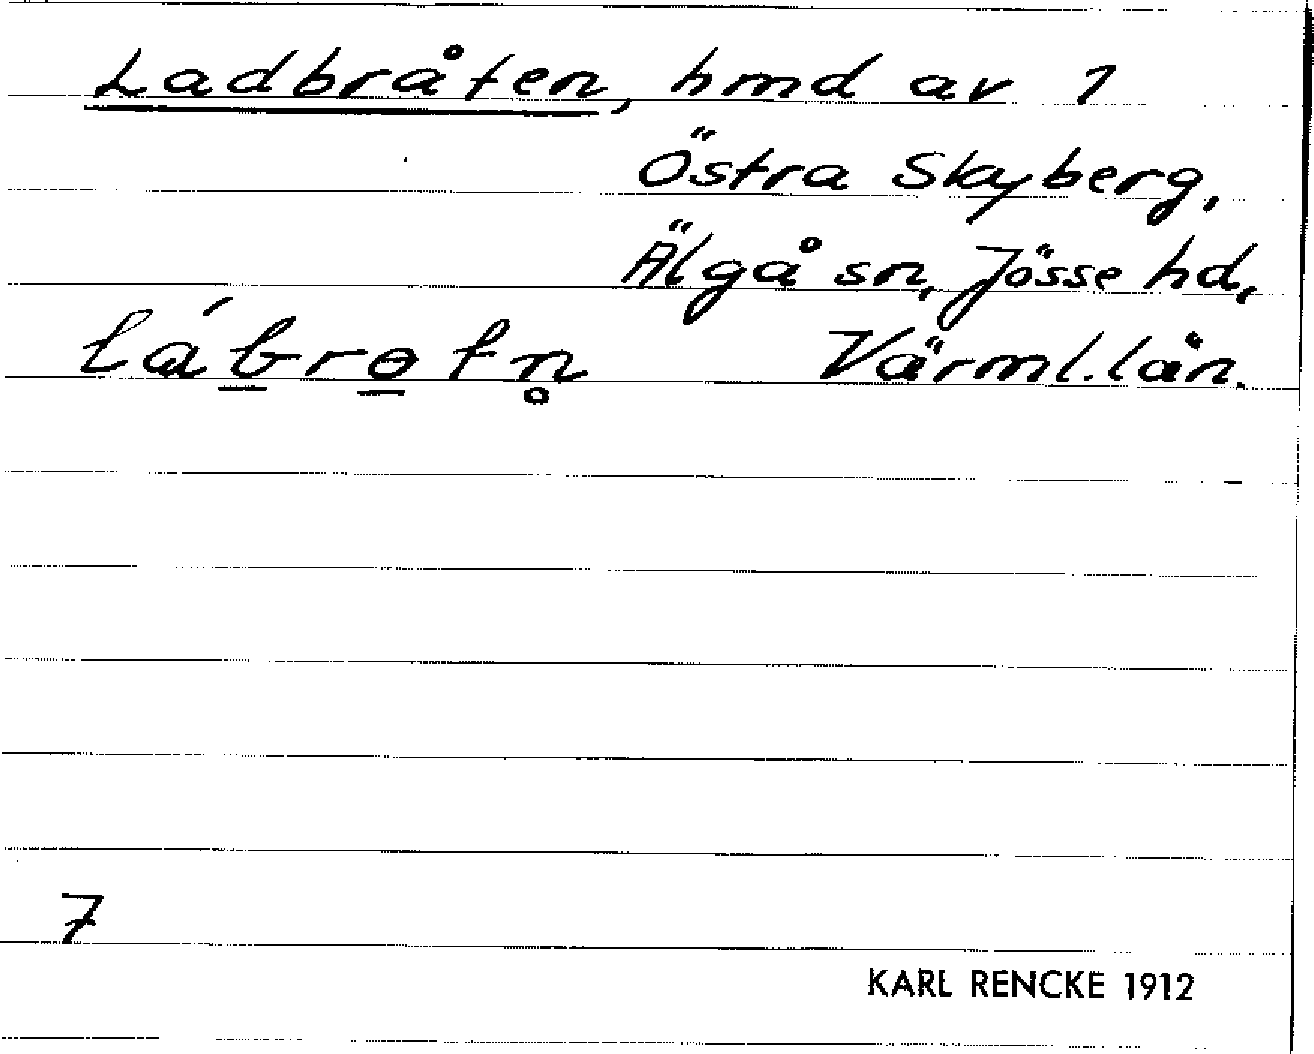 Ladbråten, hmd av 1
Östra Skyberg,
Älgå sn, Jösse hd,
Värml. län.
7
KARL RENCKE 1912